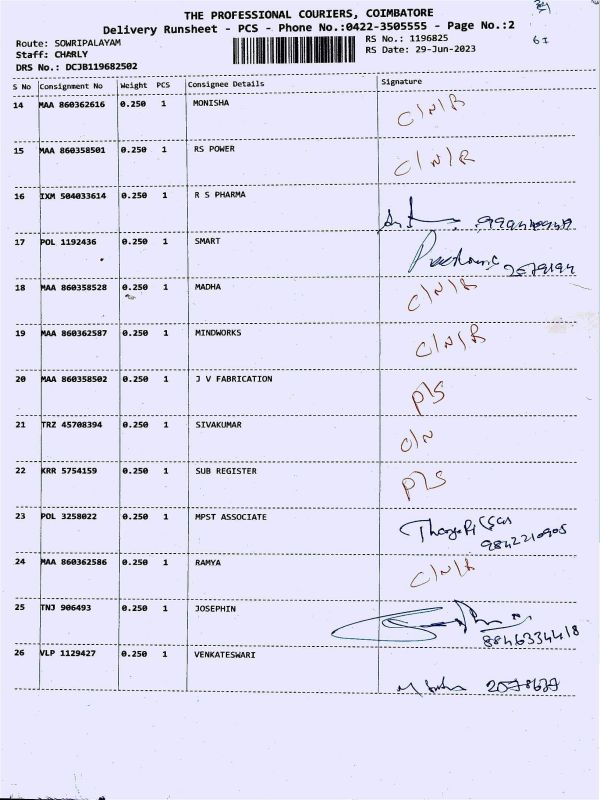 THE PROFESSIONAL COURIERS, COIMBATORE
Delivery Runsheet - PCS - Phone No.:0422-3505555 - Page No.:2
Route: SOWRIPALAYAM RS No.: 1196825
Staff: CHARLY RS Date: 29-Jun-2023
DRS No.: DCJB119682502
S No Consignment No Weight PCS Consignee Details Signature
14 MAA 860362616 0.250 1 MONISHA C/N/R
15 MAA 860358501 0.250 1 RS POWER C/N/R
16 IXM 504033614 0.250 1 R S PHARMA
17 POL 1192436 0.250 1 SMART 2579194
18 MAA 860358528 0.250 1 MADHA C/N/R
19 MAA 860362587 0.250 1 MINDWORKS C/N/R
20 MAA 860358502 0.250 1 J V FABRICATION P/S
21 TRZ 45708394 0.250 1 SIVAKUMAR C/N
22 KRR 5754159 0.250 1 SUB REGISTER P/S
23 POL 3258022 0.250 1 MPST ASSOCIATE 9842210905
24 MAA 860362586 0.250 1 RAMYA C/N/R
25 TNJ 906493 0.250 1 JOSEPHIN 8846334418
26 VLP 1129427 0.250 1 VENKATESWARI